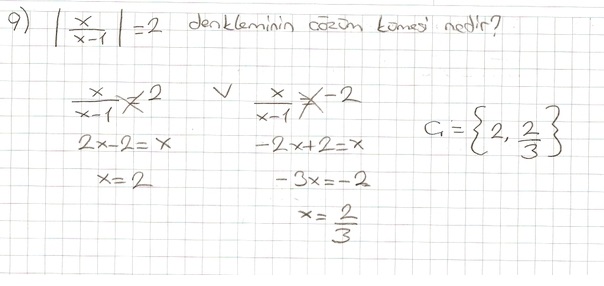 9) |x/(x-1)| = 2 denkleminin çözüm kümesi nedir?
x/(x-1) = 2 ∨ x/(x-1) = -2
2x-2=x -2x+2=x
x=2 -3x=-2
x=2/3
Ç={2, 2/3}